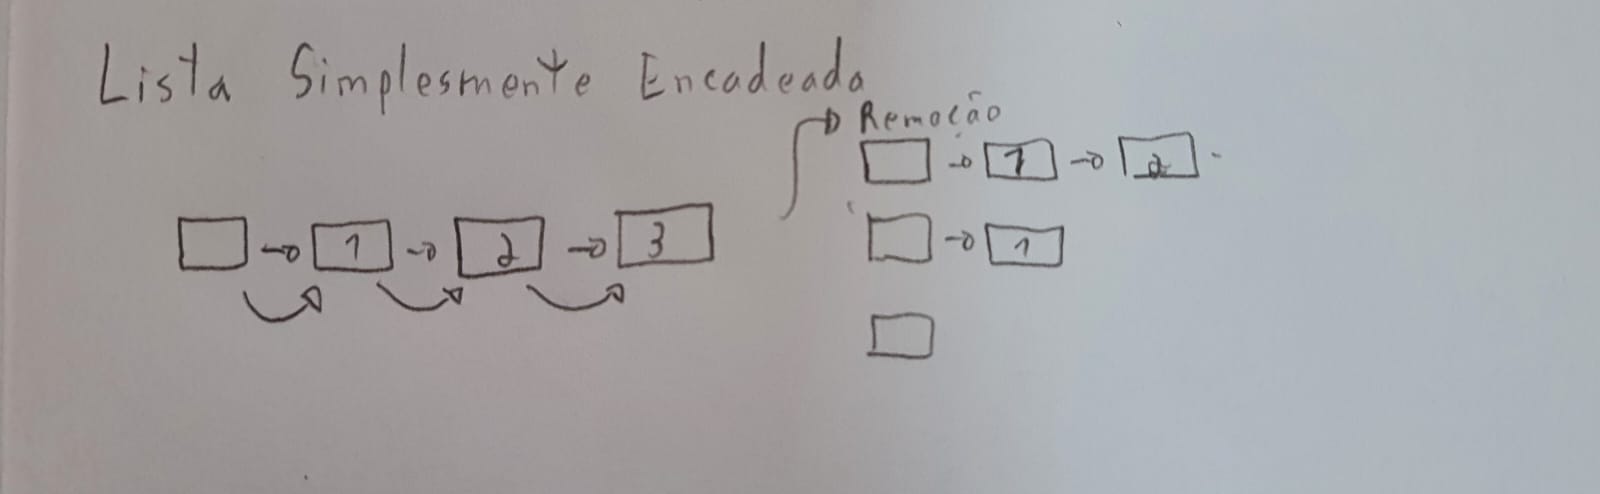 Lista Simplesmente Encadeada
Remoção
1 2
1 2 3
1